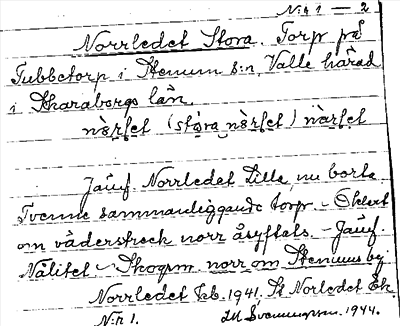 N:r 1 — 2
Norrledet Stora. Torp på
Tubbetorp i Stenum s:n, Valle härad
i Skaraborgs län.
(stóra
Jämf. Norrledet Lilla, nu borta.
Tvenne sammanliggande torp. – Oklart
om väderstreck norr åsyftats. – Jämf.
Nälitet – Skogsm. norr om Stenums by
Norrledet Jeb. 1941, St Norledet Ek.
N:r 1. Svennungsson. 1944.